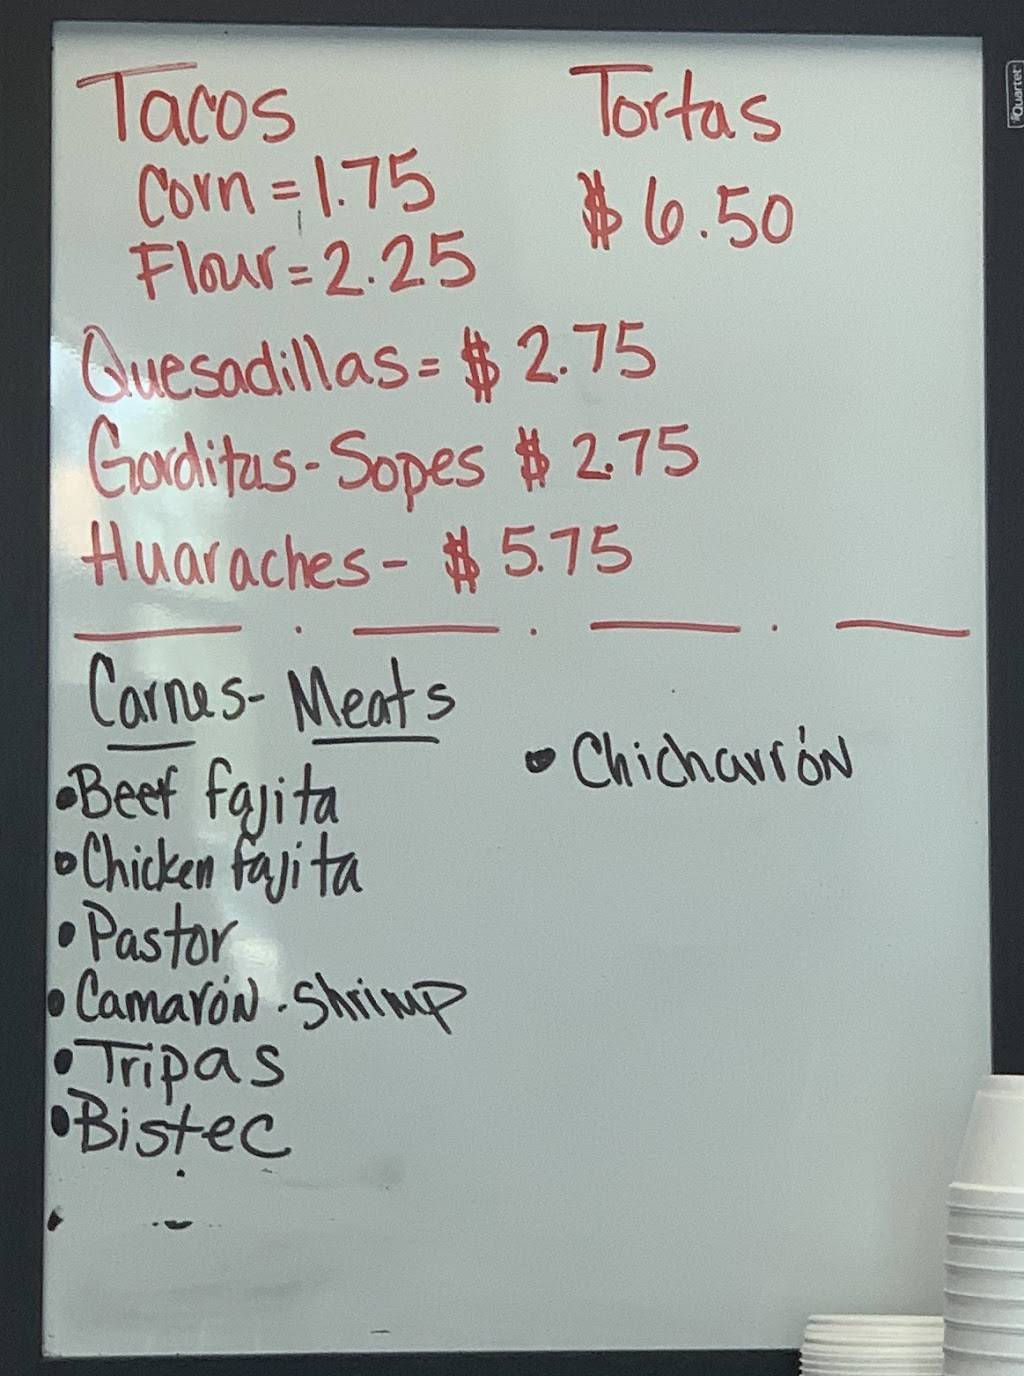 Tacos
Corn = 1.75
Flour = 2.25
Tortas
$ 6.50
Quesadillas = $ 2.75
Gorditas - Sopes $ 2.75
Huaraches - $ 5.75
Carnes - Meats
• Beef fajita
• Chicken fajita
• Pastor
• Camarón - Shrimp
• Tripas
• Bistec
• Chicharrón
Quartet